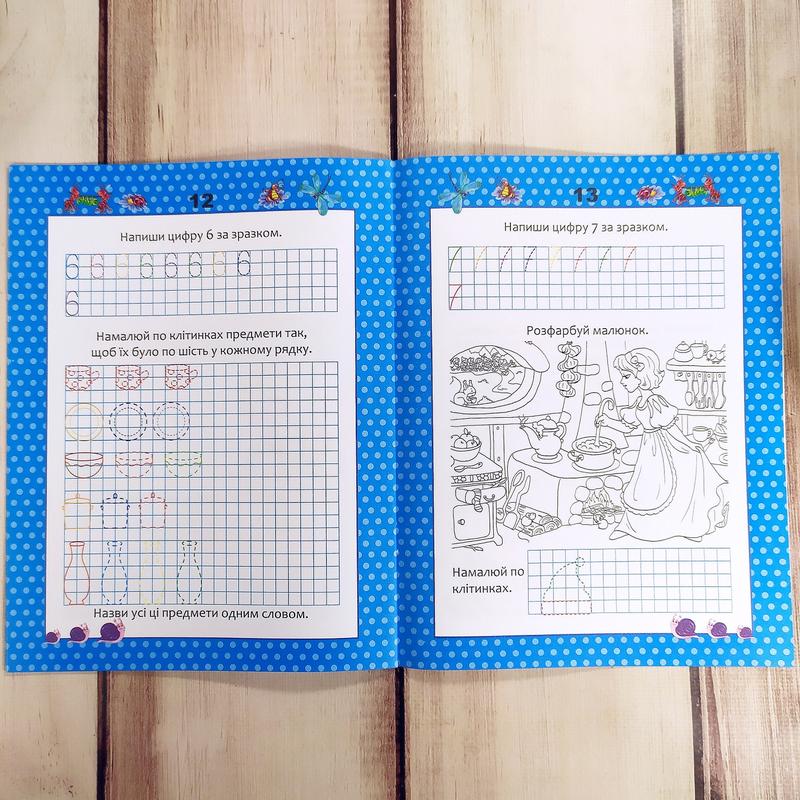 12
Напиши цифру 6 за зразком.
6 6 6 6 6 6 6 6
6
Намалюй по клітинках предмети так,
щоб їх було по шість у кожному рядку.
Назви усі ці предмети одним словом.
13
Напиши цифру 7 за зразком.
Розфарбуй малюнок.
Намалюй по
клітинках.